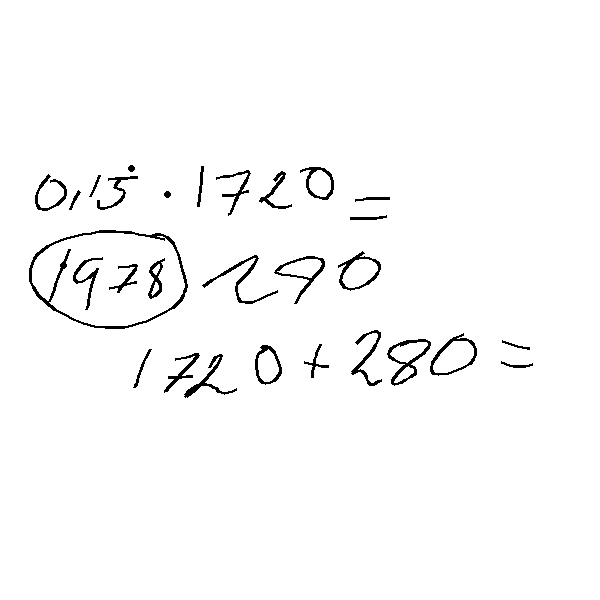 0,15 · 1720 =
1978 290
1720 + 280 =